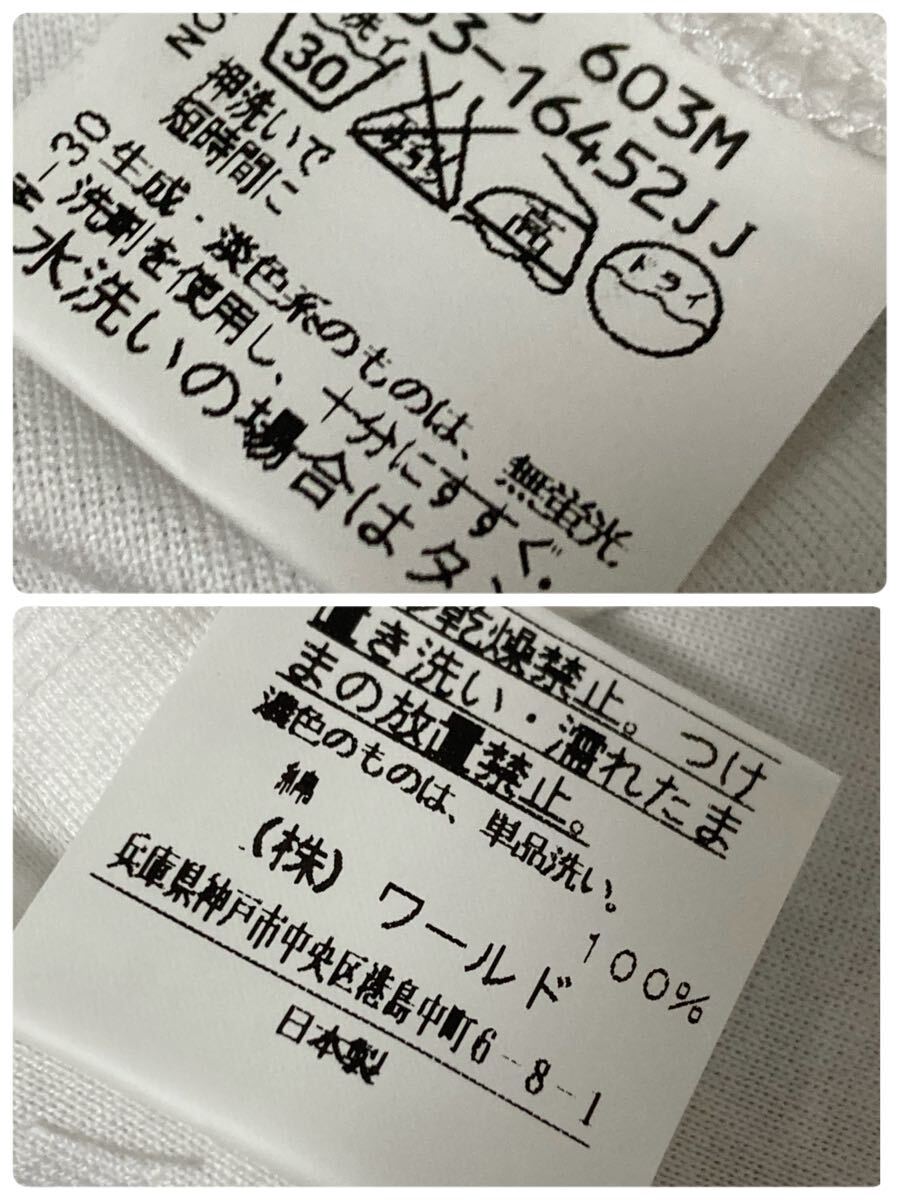 603M
03-16452JJ
手洗イ
30
エンソサラシ
高
ドライ
押洗いで
短時間に
30
生成・淡色系のものは、無蛍光
洗剤を使用し、十分にすすぐ。
水洗いの場合はタ
乾燥禁止。つけ
置き洗い・濡れたま
まの放置禁止。
濃色のものは、単品洗い。
綿 100%
(株)ワールド
兵庫県神戸市中央区港島中町6-8-1
日本製